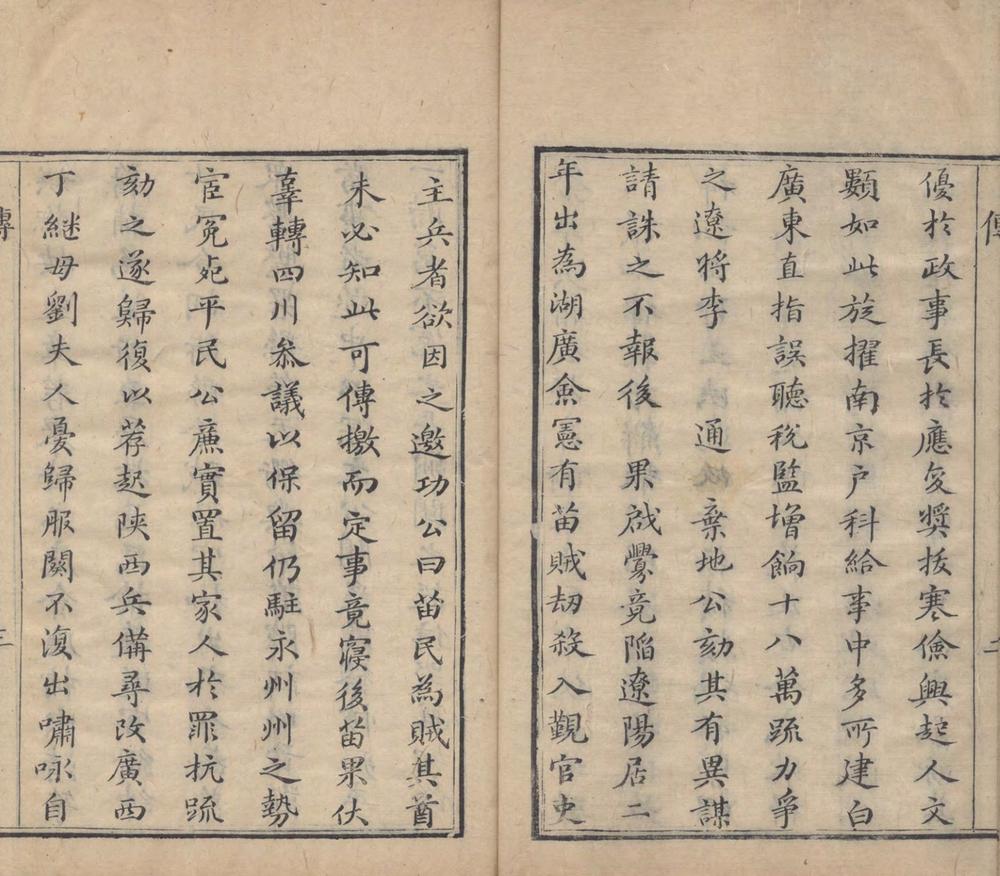 優於政事長於應変獎拔寒儉興起人文
顆如此旋擢南京户科給事中多所建白
廣東直指誤聽稅監增餉十八萬疏力爭
之遼將李 通 棄地公劾其有異謀
請誅之不報後果啟釁竟陷遼陽居二
年出為湖廣僉憲有苗賊劫殺入觀官吏
主兵者欲因之邀功公曰苗民為賊其酋
未必知此可傳檄而定事竟寢後苗果伏
辜轉四川叅議以保留仍駐永州州之勢
宦冤殺平民公廉實置其家人於罪抗疏
劾之遂歸復以荐起陝西兵備尋改廣西
丁繼母劉夫人憂歸服闋不復出嘯咏自
傳
二
三